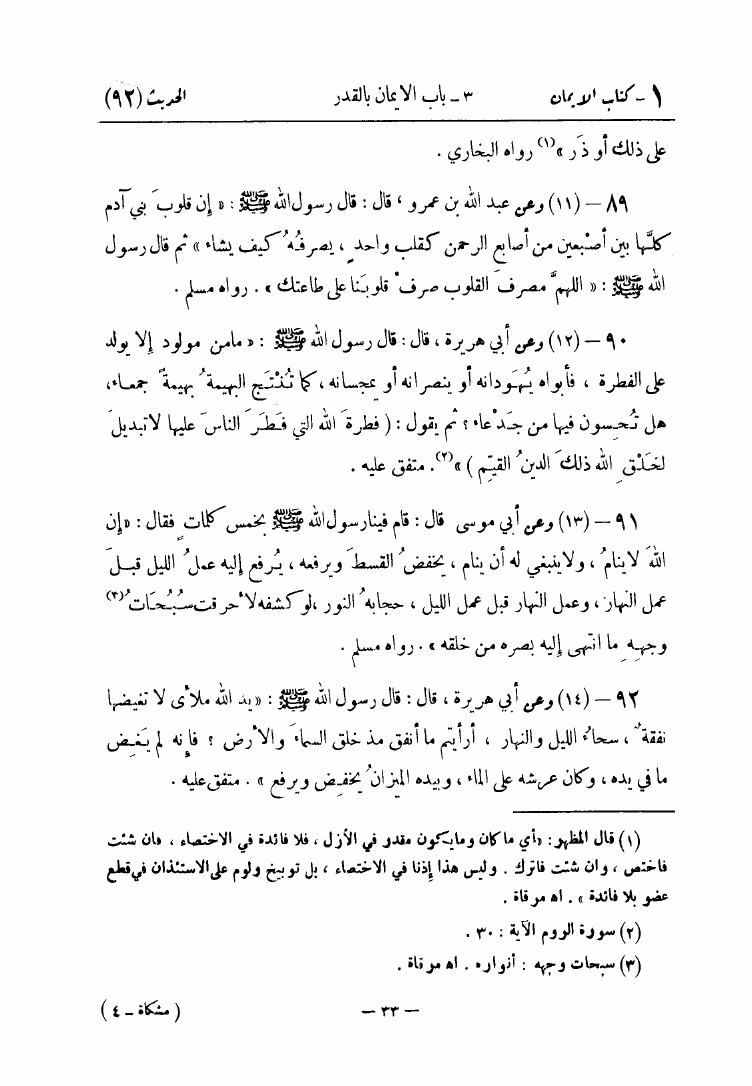 ١ - كتاب الايمان ٣ - باب الايمان بالقدر الحديث (٩٢)
على ذلك أو ذَر »(١) رواه البخاري .
٨٩ – (١١) وعن عبد الله بن عمرو ، قال : قال رسول الله ﷺ : « إن قلوبَ بني آدم
كلَّها بين أصْبعين من أصابع الرحمن كقلب واحدٍ ، يصرفُهُ كيف يشاء » ثم قال رسول
الله ﷺ : « اللهمَّ مصرفَ القلوب صرفْ قلوبَنا على طاعتك » . رواه مسلم .
٩٠ – (١٢) وعن أبي هريرة ، قال : قال رسول الله ﷺ : « مامن مولود إلا يولد
على الفطرة ، فأبواه يُهَودانه أو ينصرانه أو يمجسانه ، كما تُنْتَج البهيمةُ بهيمةً جمعاء ،
هل تُحِسون فيها من جَدْعاء ؟ ثم يقول : ( فطرةَ الله التي فَطَرَ الناسَ عليها لاتبديلَ
لخَلْقِ الله ذلكَ الدينُ القيّم ) »(٢). متفق عليه .
٩١ – (١٣) وعن أبي موسى قال : قام فينا رسول الله ﷺ بخمس كلماتٍ فقال : «إن
اللهَ لاينامُ ، ولاينبغي له أن ينام ، يخفضُ القسطَ ويرفعه ، يُرفع إليه عملُ الليل قبلَ
عمل النهار ، وعمل النهار قبل عمل الليل ، حجابهُ النور ،لو كشفه لأحرقت سُبُحَاتُ(٣)
وجههِ ما انتهى إليه بصره من خلقه » . رواه مسلم .
٩٢ – (١٤) وعن أبي هريرة ، قال : قال رسول الله ﷺ : «يد الله ملأى لا تغيضها
نفقةٌ ، سحاءُ الليل والنهار ، أرأيتم ما أنفق مذ خلق السماءَ والأرض ؟ فإنه لم يَغِض
ما في يده ، وكان عرشه على الماء ، وبيده الميزانُ يخفِض ويرفع » . متفق عليه .
(١) قال المظهر: «أي ما كان وما يكون مقدر في الأزل ، فلا فائدة في الاختصاء ، فان شئت
فاختص ، وان شئت فاترك . وليس هذا إذنا في الاختصاء ، بل توبيخ ولوم على الاستئذان في قطع
عضو بلا فائدة » . اه مرقاة .
(٢) سورة الروم الآية : ٣٠ .
(٣) سبحات وجهه : أنواره . اه مرقاة .
– ٣٣ – ( مشكاة - ٤ )